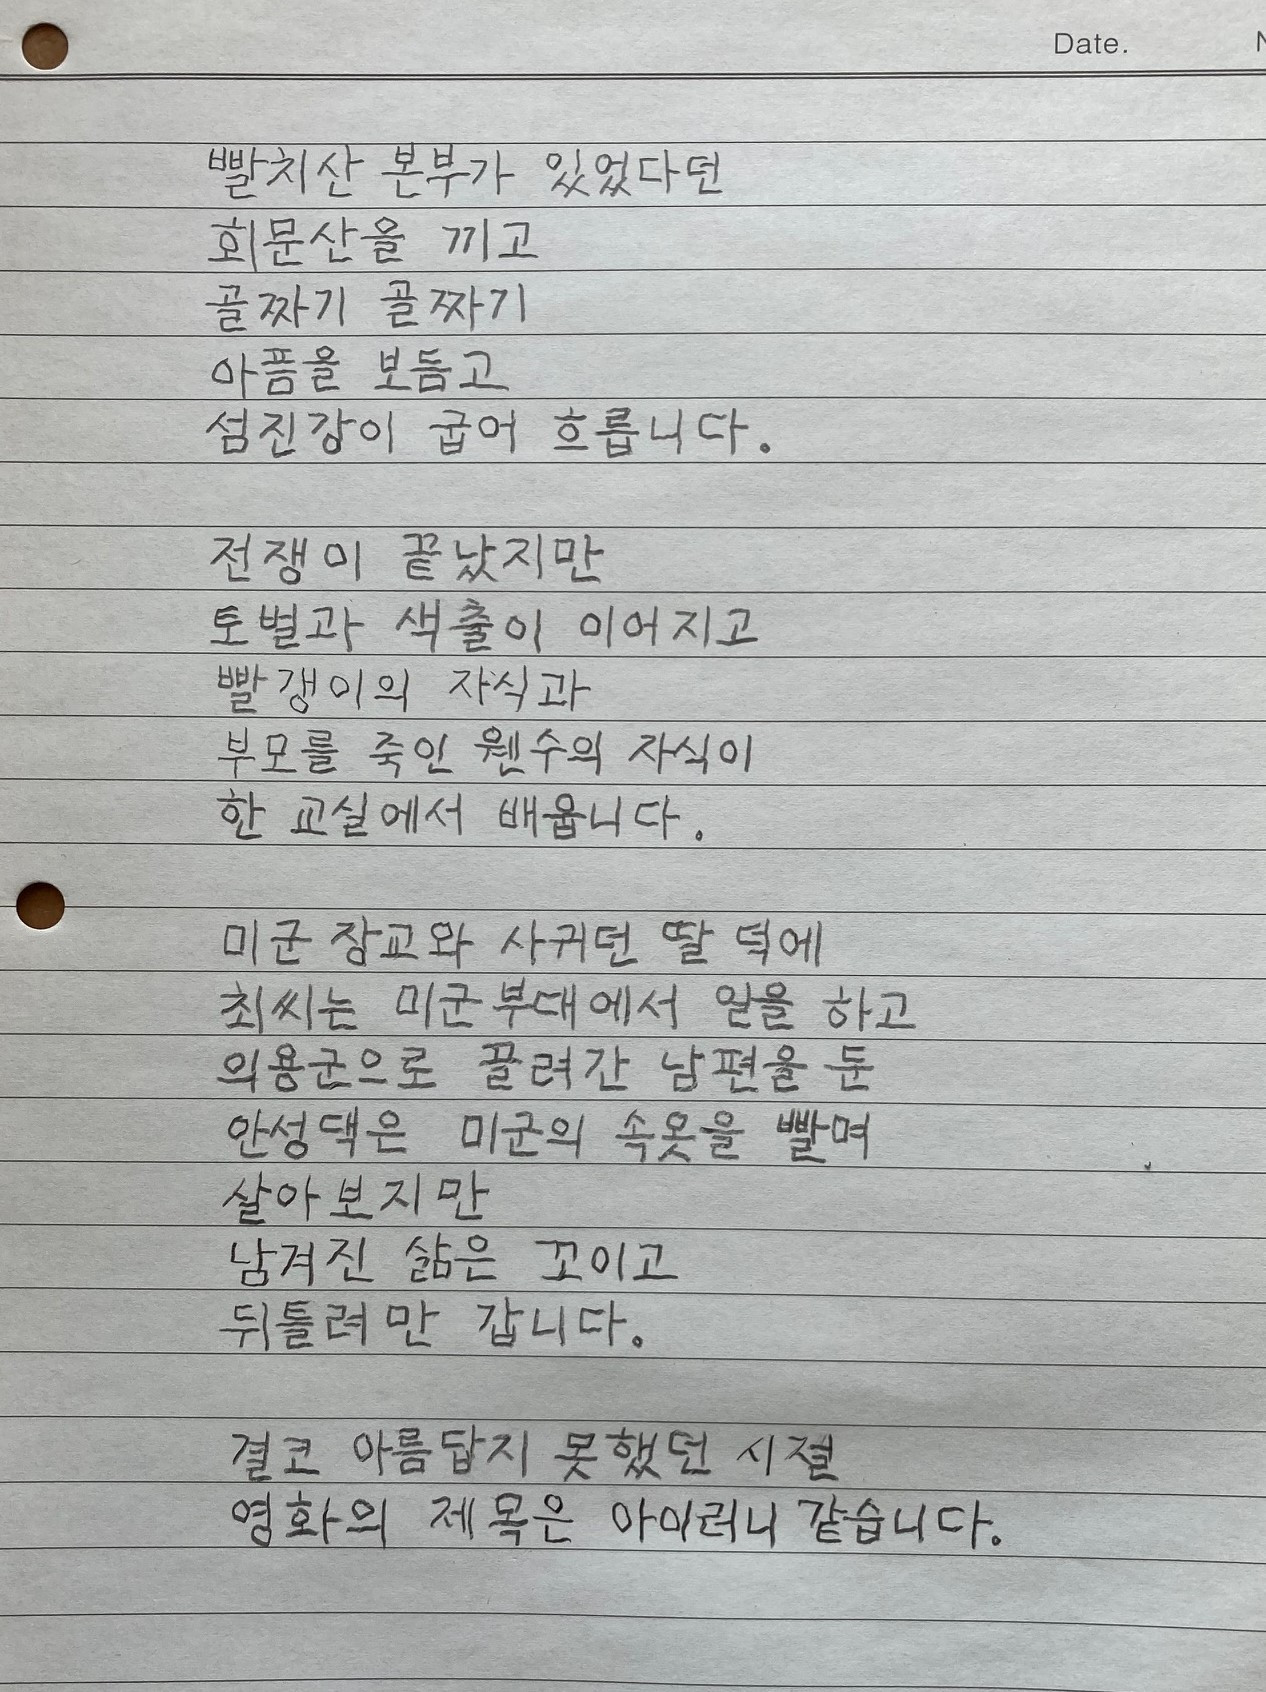 Date.
빨치산 본부가 있었다던
회문산을 끼고
골짜기 골짜기
아픔을 보듬고
섬진강이 굽어 흐릅니다.
전쟁이 끝났지만
토벌과 색출이 이어지고
빨갱이의 자식과
부모를 죽인 웬수의 자식이
한 교실에서 배웁니다.
미군 장교와 사귀던 딸 덕에
최씨는 미군부대에서 일을 하고
의용군으로 끌려간 남편을 둔
안성댁은 미군의 속옷을 빨며
살아보지만
남겨진 삶은 꼬이고
뒤틀려만 갑니다.
결코 아름답지 못했던 시절
영화의 제목은 아이러니 같습니다.